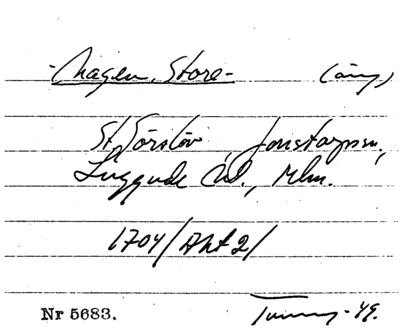 -Hagen, Store- (äng)
St. Sörslöv, Jonstorps sn,
Luggude hd., Mlm.
1704/Akt 2/
Nr 5683.